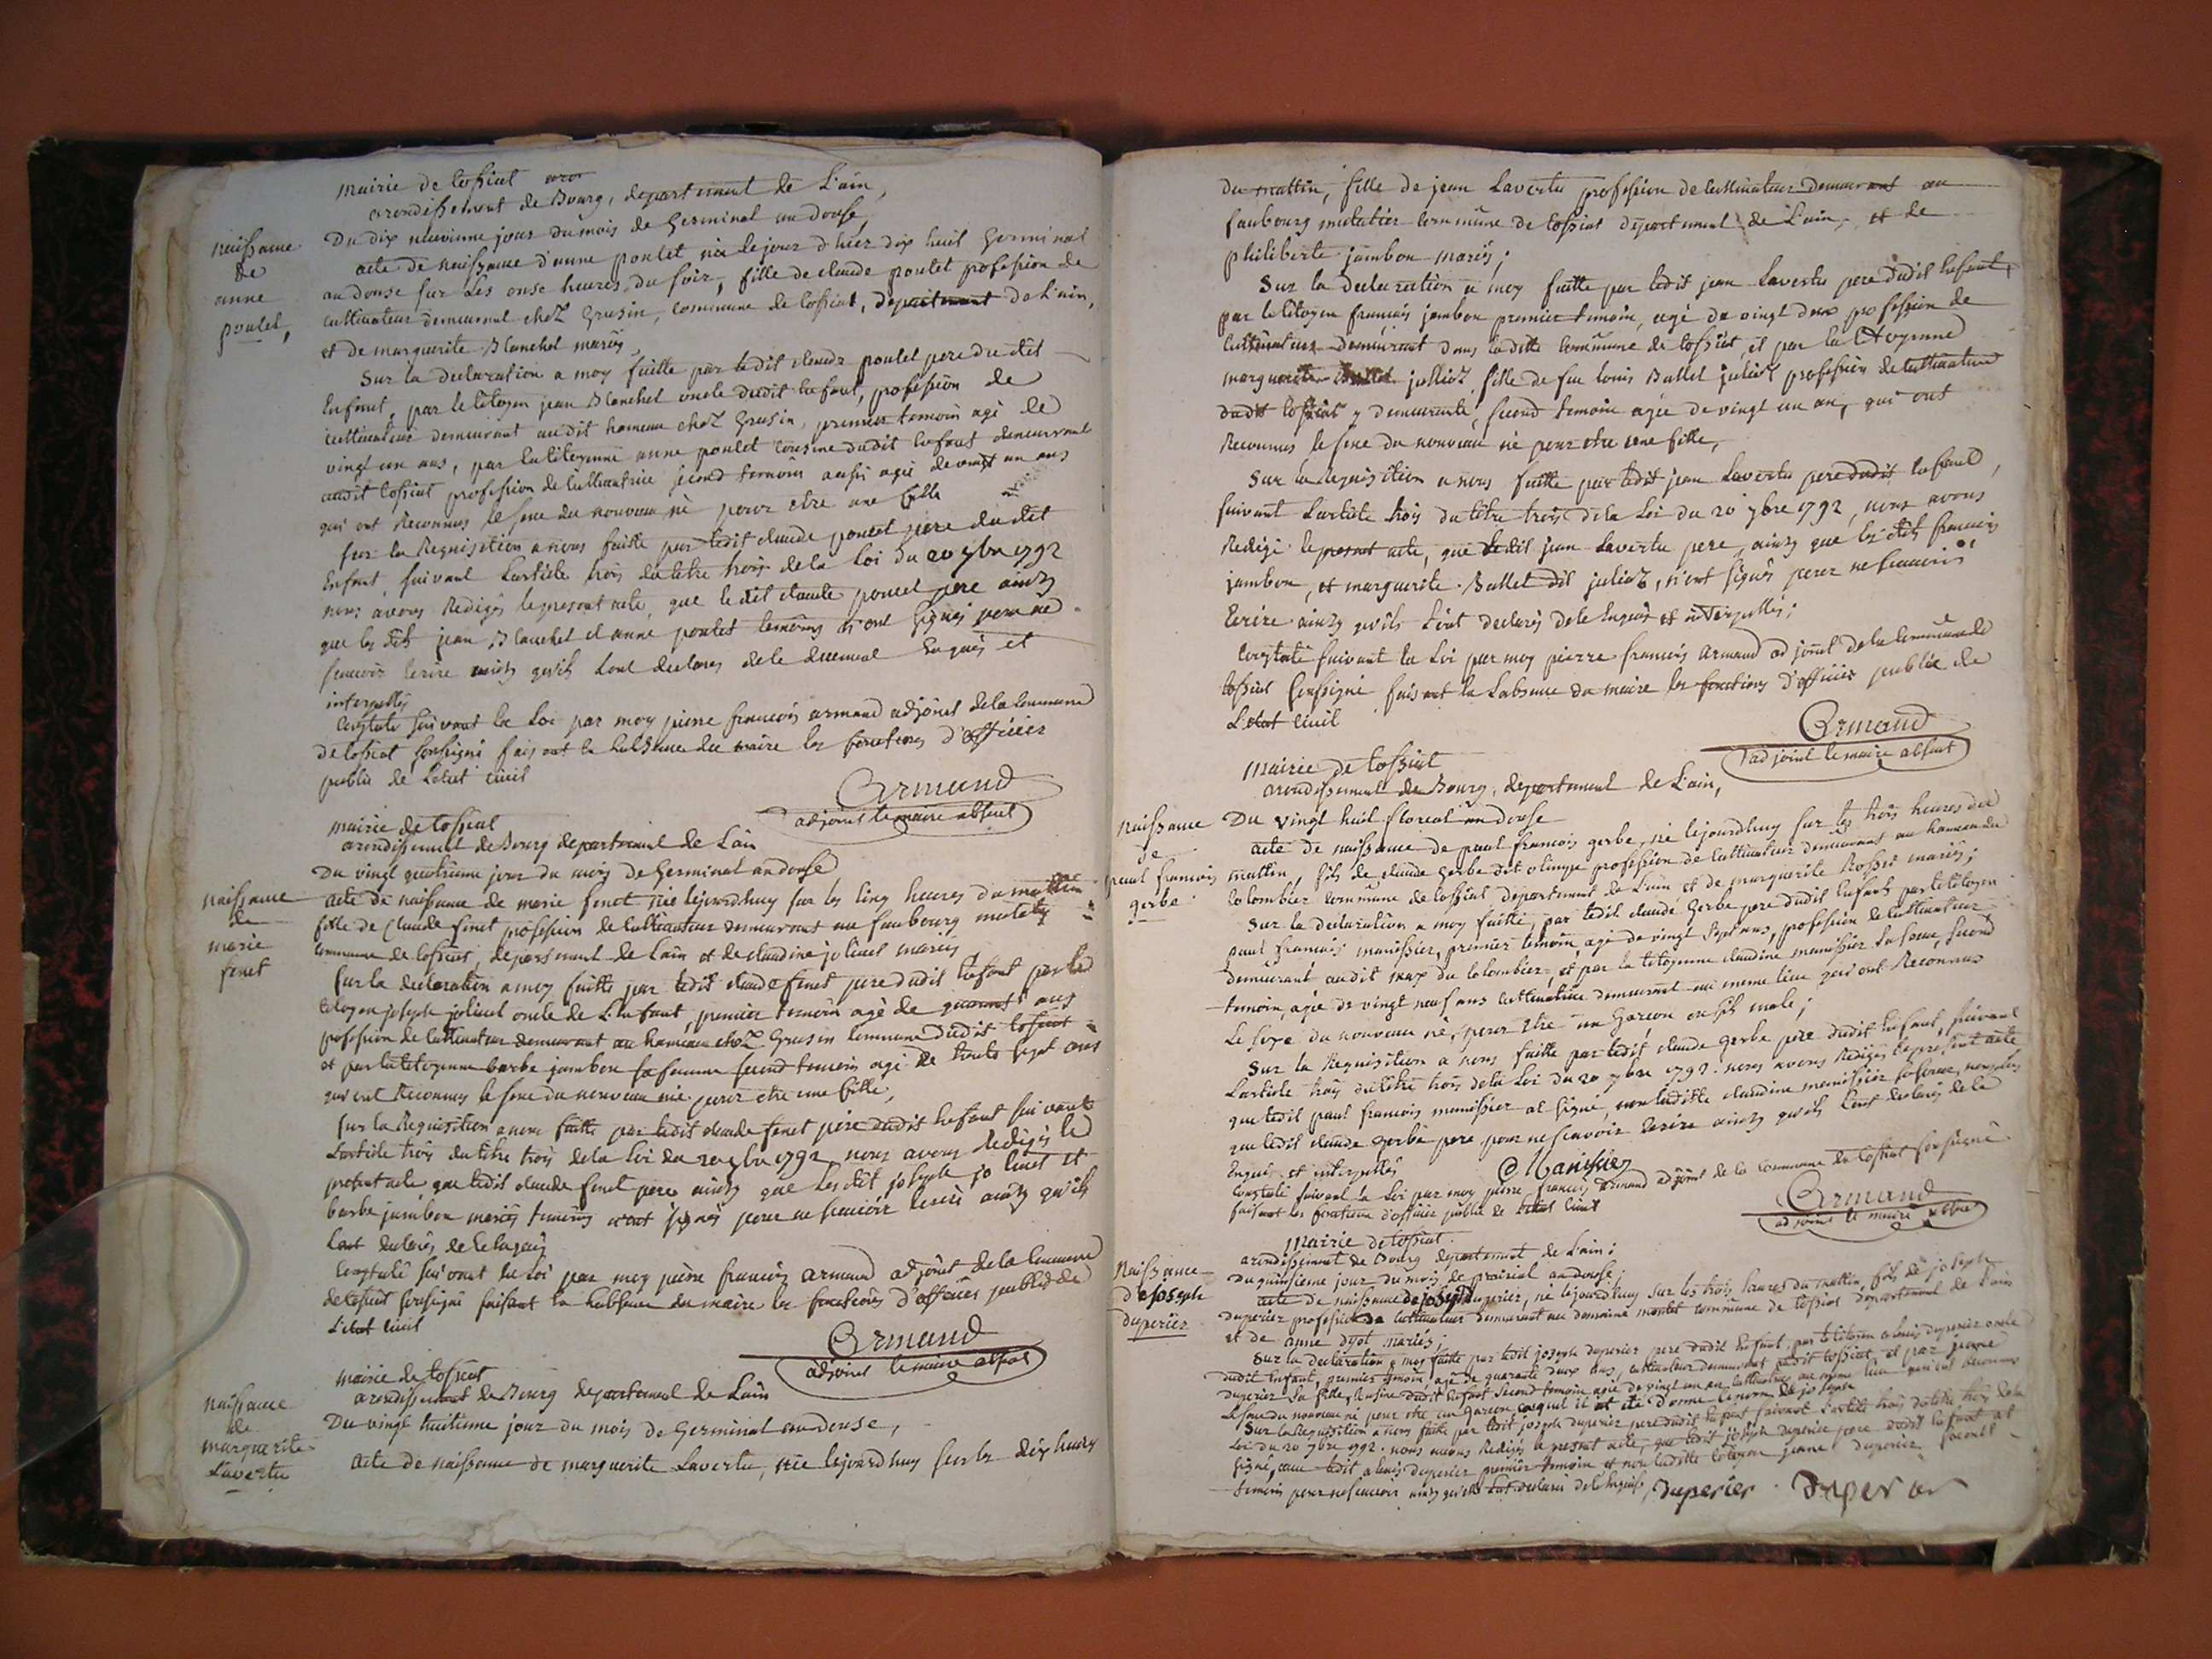 mairie de tossiat
arondissement de Bourg, departement de L'ain,
Du dix neuvieme jour du mois de Germinal an douse
naissance
de
anne
poulet,
acte de naissance d'anne poulet née le jour d'hier dix huit Germinal
an douse sur les onse heures du soir, fille de claude poulet profession de
cultivateur demeurant chez Grusin, commune de tossiat, departement de L'ain,
et de marguerite Blanchet mariés,
Sur la declaration a moy faitte par ledit claude poulet pere du dit
Enfant, par le citoyen jean Blanchet oncle dudit enfant, profession de
cultivateur demeurant audit hameau chez Grusin, premier temoin agé de
vingt un ans, par la citoyenne anne poulet cousine dudit enfant demeurant
audit tossiat profession de cultivatrice second temoin aussi agée de vingt un ans
qui ont Reconnus le sexe du nouveau né pour etre une fille
sur la Requisition a nous faitte par ledit claude poulet pere du dit
Enfant, suivant L'article trois du titre trois de la Loi du 20 7bre 1792
nous avons Redigés le present acte, que le dit claude poulet pere ainsy
que les dits jean Blanchet et anne poulet temoins n'ont signés pour ne
scavoir Ecrire ainsy qu'ils l'ont declarés de ce duement Enquis et
interpellés
Constaté suivant la Loi par moy pierre francois armand adjoint de la commune
de tossiat soussigné faisant en L'absence du maire les fonctions d'officier
public de L'etat civil
Armand
adjoint le maire absent
mairie de tossiat
arondissement de Bourg departement de L'ain
Du vingt quatrieme jour du mois de Germinal an douse
naissance
de
marie
fenet
acte de naissance de marie fenet née le jourdhuy sur les cinq heures du mattin
fille de Claude fenet profession de cultivateur demeurant au faubourg
commune de tossiat, departement de L'ain et de claudine joliuet mariés
sur la declaration a moy faitte par ledit claude fenet pere dudit Enfant par le
citoyen joseph joliuet oncle de L'Enfant, premier temoin agé de quarante ans
profession de cultivateur demeurant au hameau chez Grusin commune dudit tossiat
et par la citoyenne barbe jambon sa femme second temoin agé de trente sept ans
qui ont Reconnus le sexe du nouveau née pour etre une fille,
sur la Requisition a nous faitte par ledit claude fenet pere dudit Enfant suivant
L'article trois du titre trois de la Loi du 20 7bre 1792 nous avons Redigés le
present acte, que ledit claude fenet pere ainsy que les dit joseph joliuet et
barbe jambon mariés temoins n'ont signés pour ne scavoir Ecrire ainsy qu'ils
L'ont declarés de ce Enquis
Constaté suivant la Loi par moy pierre francois armand adjoint de la commune
de tossiat soussigné faisant en L'absence du maire les fonctions d'officier public de
L'etat civil
Armand
adjoint le maire absent
mairie de tossiat
arondissement de Bourg departement de L'ain
Du vingt huitieme jour du mois de Germinal an douse,
naissance
de
marguerite
Lavertu
acte de naissance de marguerite Lavertu, née le jourdhuy sur les dix heures
du mattin, fille de jean Lavertu profession de cultivateur demeurant au
faubourg commune de tossiat departement de L'ain, et de
philiberte jambon mariés;
Sur la declaration a moy faitte par ledit jean Lavertu pere dudit Enfant,
par le citoyen francois jambon premier temoin, agé de vingt deux profession de
cultivateur demeurant dans la ditte commune de tossiat, et par la citoyenne
marguerite julliot fille de feu louis Ballet juliot profession de cultivature
dudit tossiat y demeurante, second temoin agée de vingt un an, qui ont
Reconnus le sexe du nouveau né pour etre une fille,
Sur la Requisition a nous faitte par ledit jean Lavertu pere dudit Enfant,
suivant L'article trois du titre trois de la Loi du 20 7bre 1792, nous avons
Redigé le present acte, que ledit jean Lavertu pere, ainsy que les dits francois
jambon, et marguerite Ballet dit juliot, n'ont signés pour ne scavoir
Ecrire ainsy qu'ils L'ont declarés de ce Enquis et interpellés;
Constaté suivant la Loi par moy pierre francois armand adjoint de la commune de
tossiat soussigné faisant en L'absence du maire les fonctions d'officier public de
L'etat civil
Armand
adjoint le maire absent
Mairie de tossiat
arondissement de Bourg, departement de L'ain,
Du vingt huit floreal an douse
naissance
de
paul francois
gerbe
acte de naissance de paul francois gerbe, né le jourdhuy sur les trois heures du
mattin, fils de claude gerbe dit olimpe profession de cultivateur demeurant au hameau du
colombier commune de tossiat, departement de L'ain et de marguerite Rosset mariés;
Sur la declaration a moy faitte, par ledit claude Gerbe pere dudit Enfant par le citoyen
paul francois manissier, premier temoin agé de vingt sept ans, profession de cultivateur
demeurant audit max du colombier, et par la citoyenne claudine manissier sa soeur, second
temoin, agée de vingt neuf ans cultivatrice demeurant au meme lieu qui ont Reconnus
Le sexe du nouveau né, pour etre un Garcon ou fils male;
Sur la Requisition a nous faitte par ledit claude gerbe pere dudit Enfant, suivant
L'article trois du titre trois de la Loi du 20 7bre 1792. nous avons Redigés le present acte
que ledit paul francois manissier at signé, non laditte claudine manissier sa soeur, non plus
que ledit claude Gerbe pere pour ne scavoir Ecrire ainsy qu'ils l'ont declarés de ce
Enquis et interpellés
Manissier
Constaté suivant la Loi par moy pierre francois Armand adjoint de la commune de tossiat soussigné
faisant les fonctions d'officier public de L'etat civil
Armand
adjoint le maire absent
Mairie de tossiat
arondissement de Bourg departement de L'ain;
Du quinsieme jour du mois de prairial an douse
Naissance
De joseph
duperier
acte de naissance de joseph duperier, né le jourdhuy sur les trois heures du mattin, fils de joseph
duperier profession de cultivateur demeurant au domaine commune de tossiat departement de L'ain
et de anne dyot mariés;
Sur la declaration a moy faitte par ledit joseph duperier pere dudit Enfant, par le citoyen alexis duperier oncle
dudit Enfant, premier temoin, agé de quarante deux ans, cultivateur demeurant audit tossiat, et par jeanne
duperier sa fille, cousine dudit Enfant second temoin agée de vingt un an cultivatrice au meme lieu qui ont Reconnus
le sexe du nouveau né pour etre un Garcon auquel il at été Donné le nom de joseph
Sur la Requisition a nous faitte par ledit joseph duperier pere dudit Enfant suivant L'article trois du titre trois de la
Loi du 20 7bre 1792. nous avons Redigés le present acte, que ledit joseph duperier pere dudit Enfant at
signé, avec ledit alexis duperier premier temoin et non laditte citoyenne jeanne duperier second
temoin pour ne scavoir ainsy qu'elle l'at declaré de ce Enquise,
Duperier Duperier